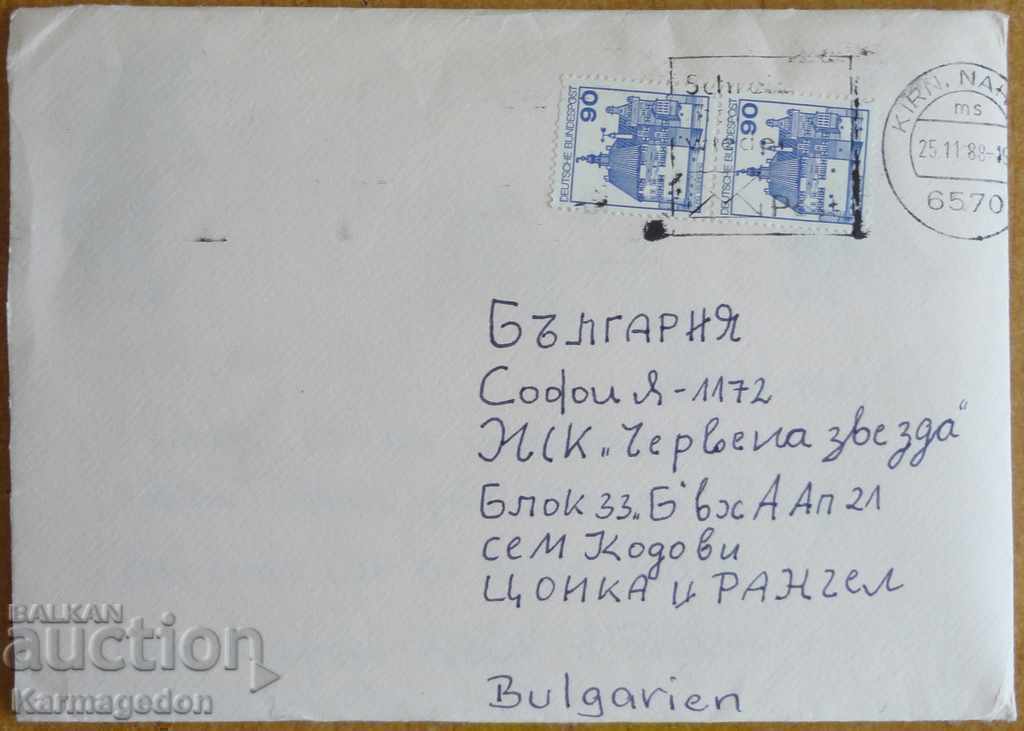 Schrei
wieder
90
DEUTSCHE BUNDESPOST
90
DEUTSCHE BUNDESPOST
KIRN, NAH
ms
25.11.88-16
6570
БЪЛГАРИЯ
София-1172
ЖСК „Червена звезда“
Блок 33„Б“ вх А Ап 21
сем Кодови
ЦОНКА И РАНГЕЛ
Bulgarien
BALKAN
auction
Karmagedon